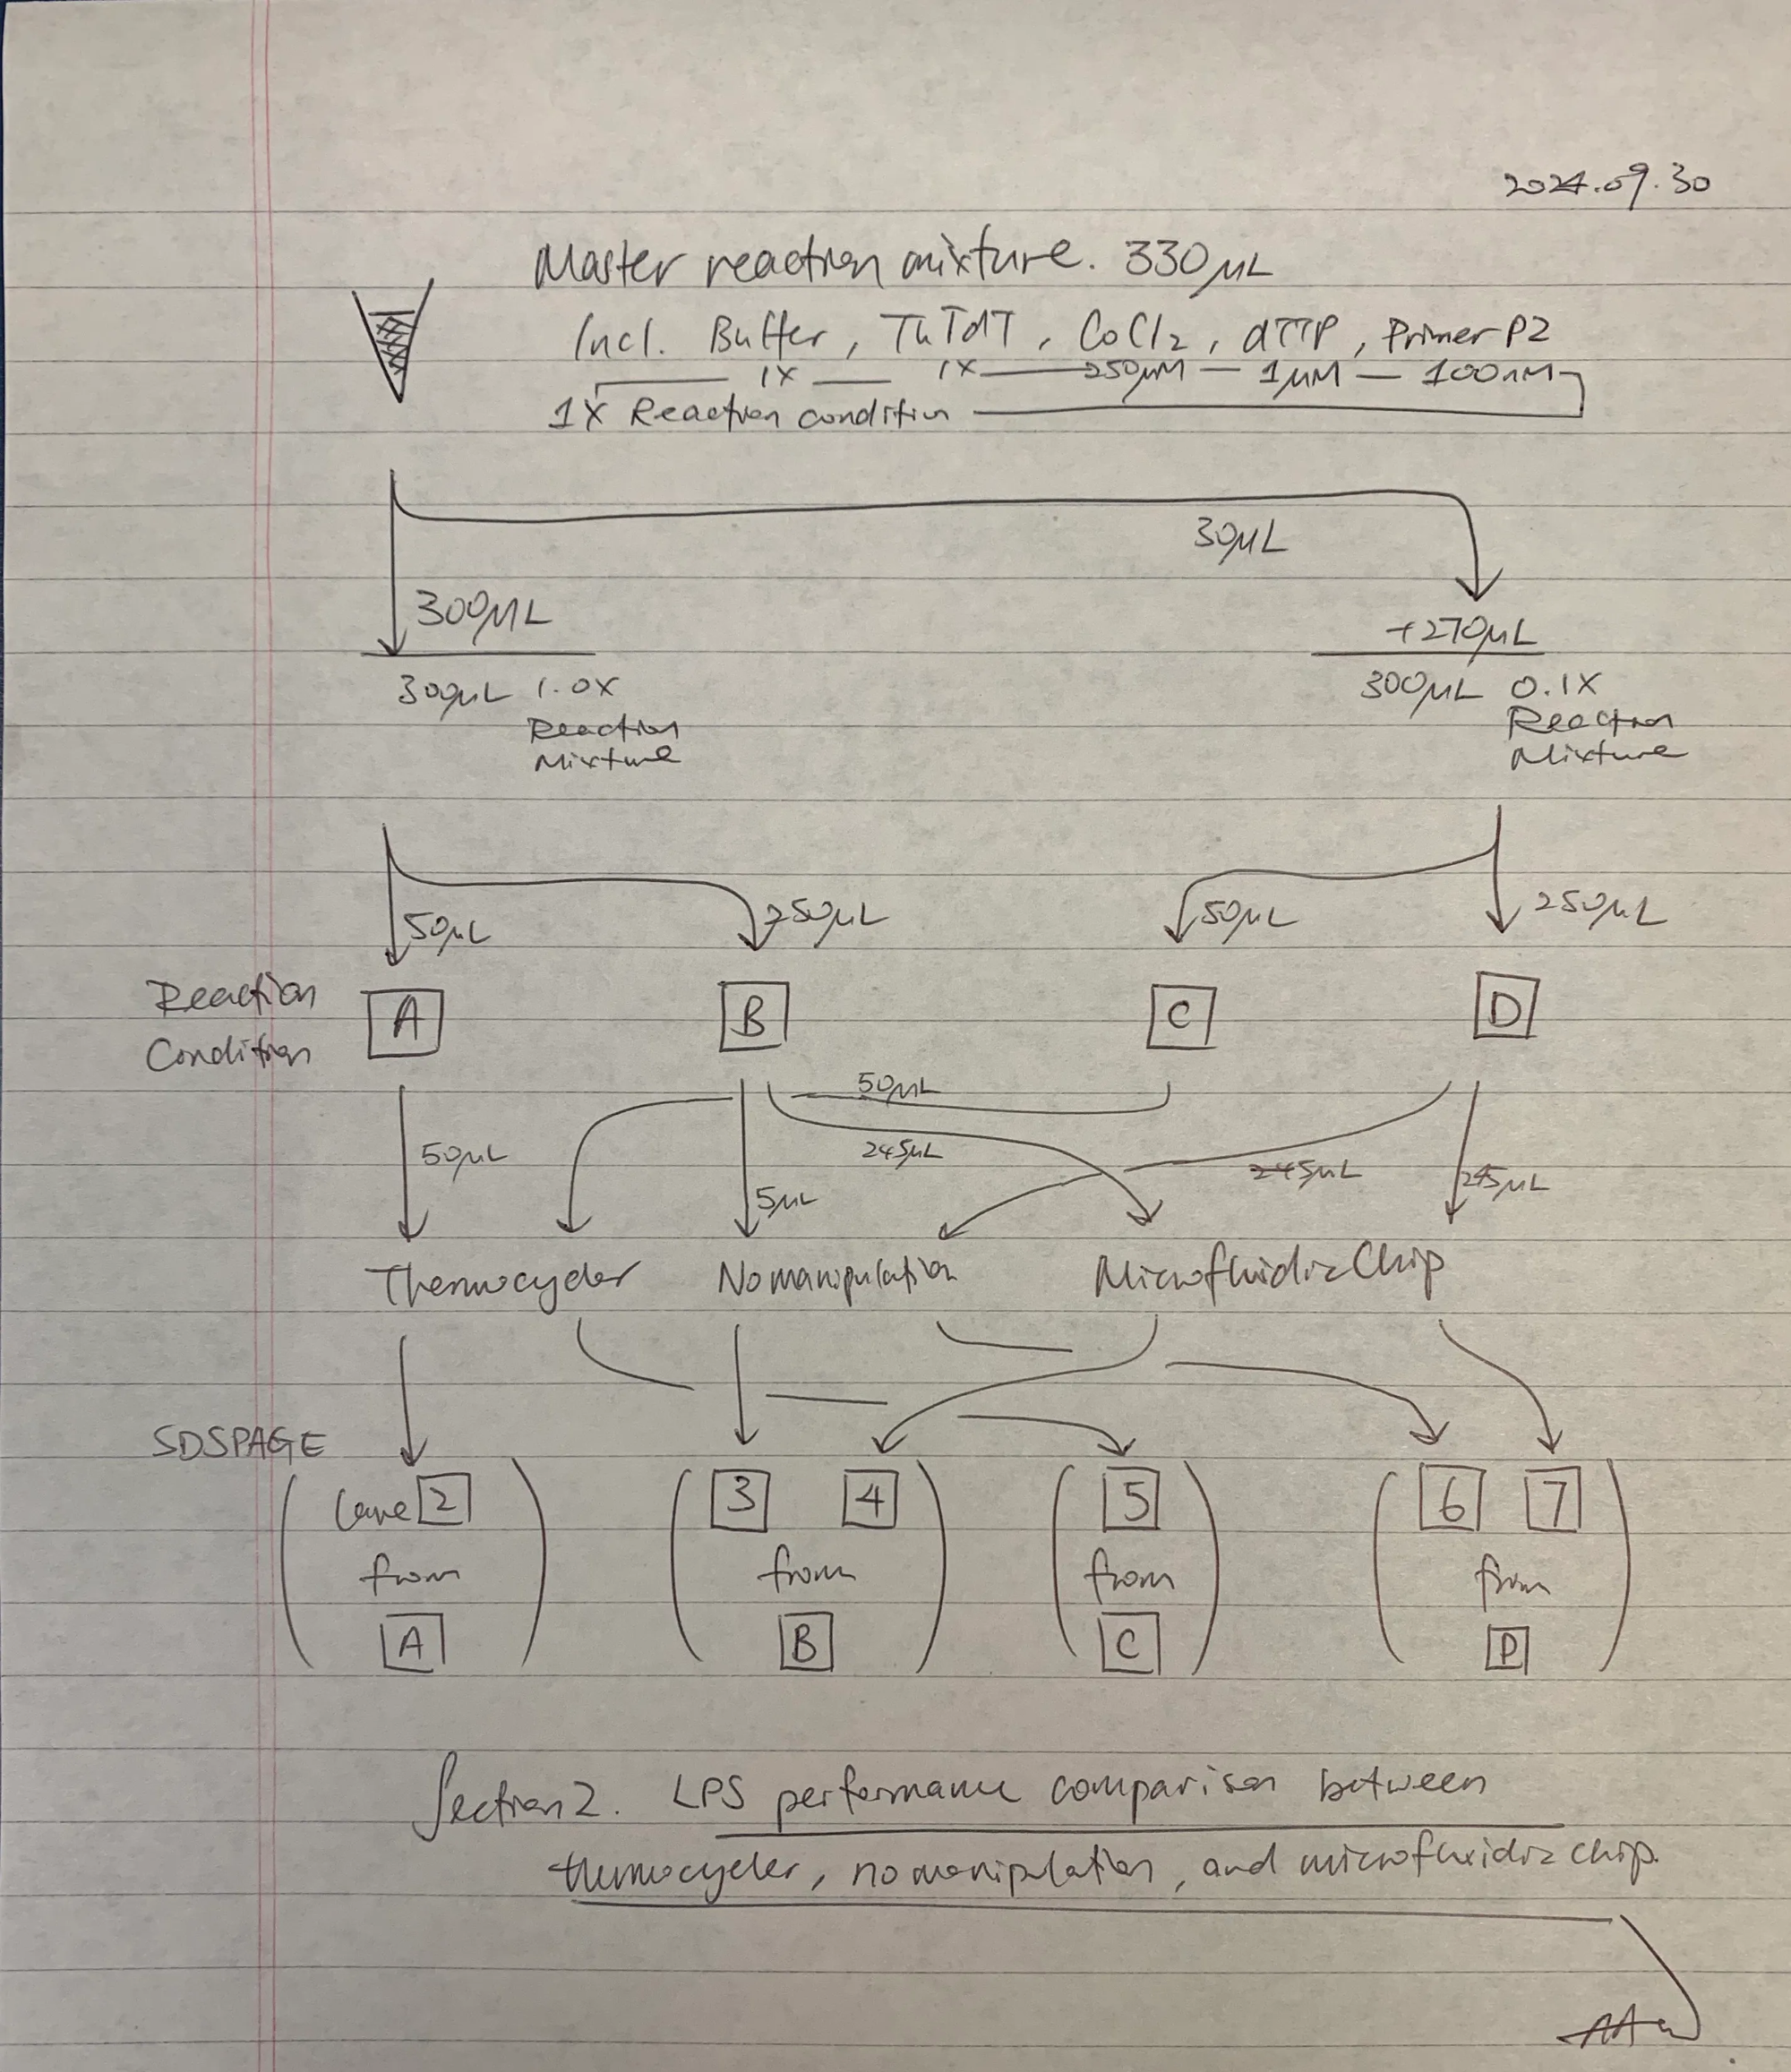 2024.09.30
Master reaction mixture. 330µL
Incl. Buffer, ThTdT, CoCl2, dTTP, Primer P2
1X 1X 250µM 1µM 100nM
1X Reaction condition
30µL
300µL
+270µL
300µL 1.0X
Reaction
Mixture
300µL 0.1X
Reaction
Mixture
50µL
250µL
50µL
250µL
Reaction
Condition
A
B
C
D
50µL
50µL
245µL
5µL
245µL
245µL
Thermocycler
No manipulation
Microfluidic Chip
SDSPAGE
Lane 2
from
A
3 4
from
B
5
from
C
6 7
from
D
Section 2. LPS performance comparison between
thermocycler, no manipulation, and microfluidic chip.